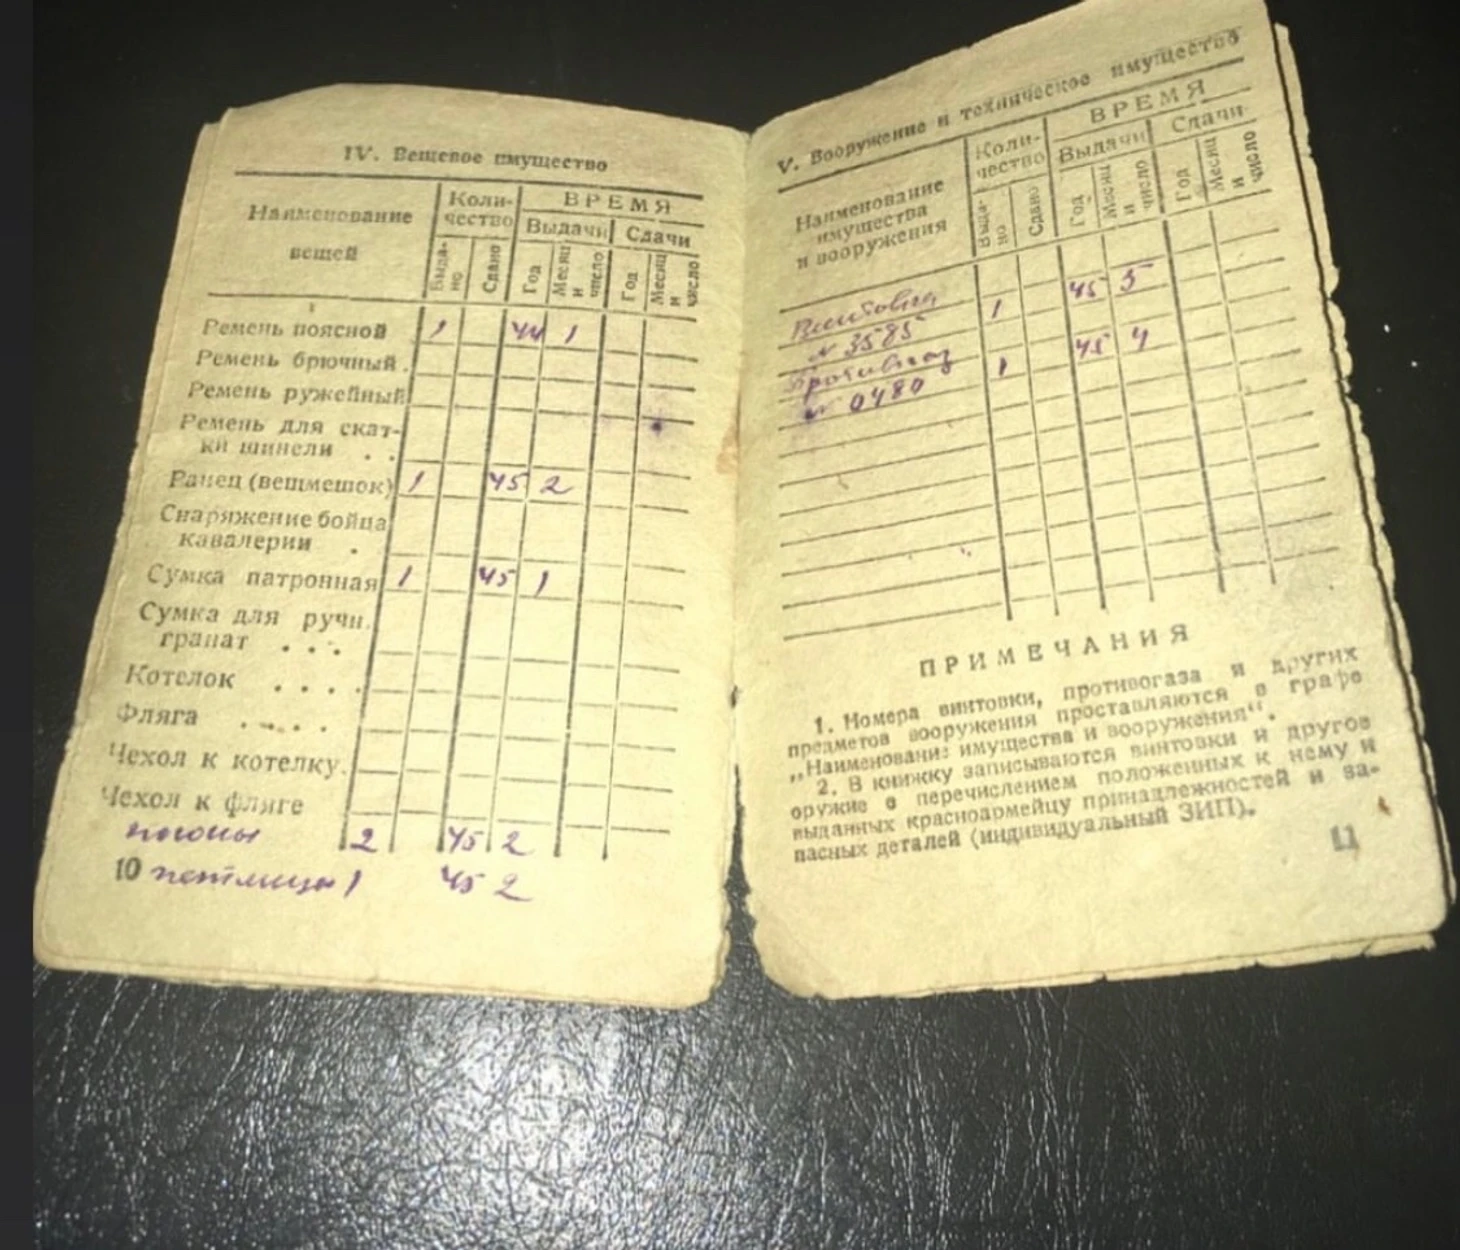 IV. Вещевое имущество
Наименование
вещей
Коли-
чество
ВРЕМЯ
Выдачи
Сдачи
Выда-
но
Сдано
Год
Месяц
и
число
Год
Месяц
и
число
Ремень поясной 1 44 1
Ремень брючный .
Ремень ружейный
Ремень для скат-
ки шинели . .
Ранец (вещмешок) 1 45 2
Снаряжение бойца
кавалерии .
Сумка патронная 1 45 1
Сумка для ручн.
гранат . . .
Котелок . . . .
Фляга . . . .
Чехол к котелку.
Чехол к фляге
погоны 2 45 2
10 петлицы 1 45 2
V. Вооружение и техническое имущество
Наименование
имущества
и вооружения
Коли-
чество
ВРЕМЯ
Выдачи
Сдачи
Выда-
но
Сдано
Год
Месяц
и
число
Год
Месяц
и
число
Винтовка 1 45 5
№ 3585
Противогаз 1 45 4
№ 0480
ПРИМЕЧАНИЯ
1. Номера винтовки, противогаза и других
предметов вооружения проставляются в графе
„Наименование имущества и вооружения“.
2. В книжку записываются винтовки и другое
оружие с перечислением положенных к нему и
выданных красноармейцу принадлежностей и за-
пасных деталей (индивидуальный ЗИП).
11